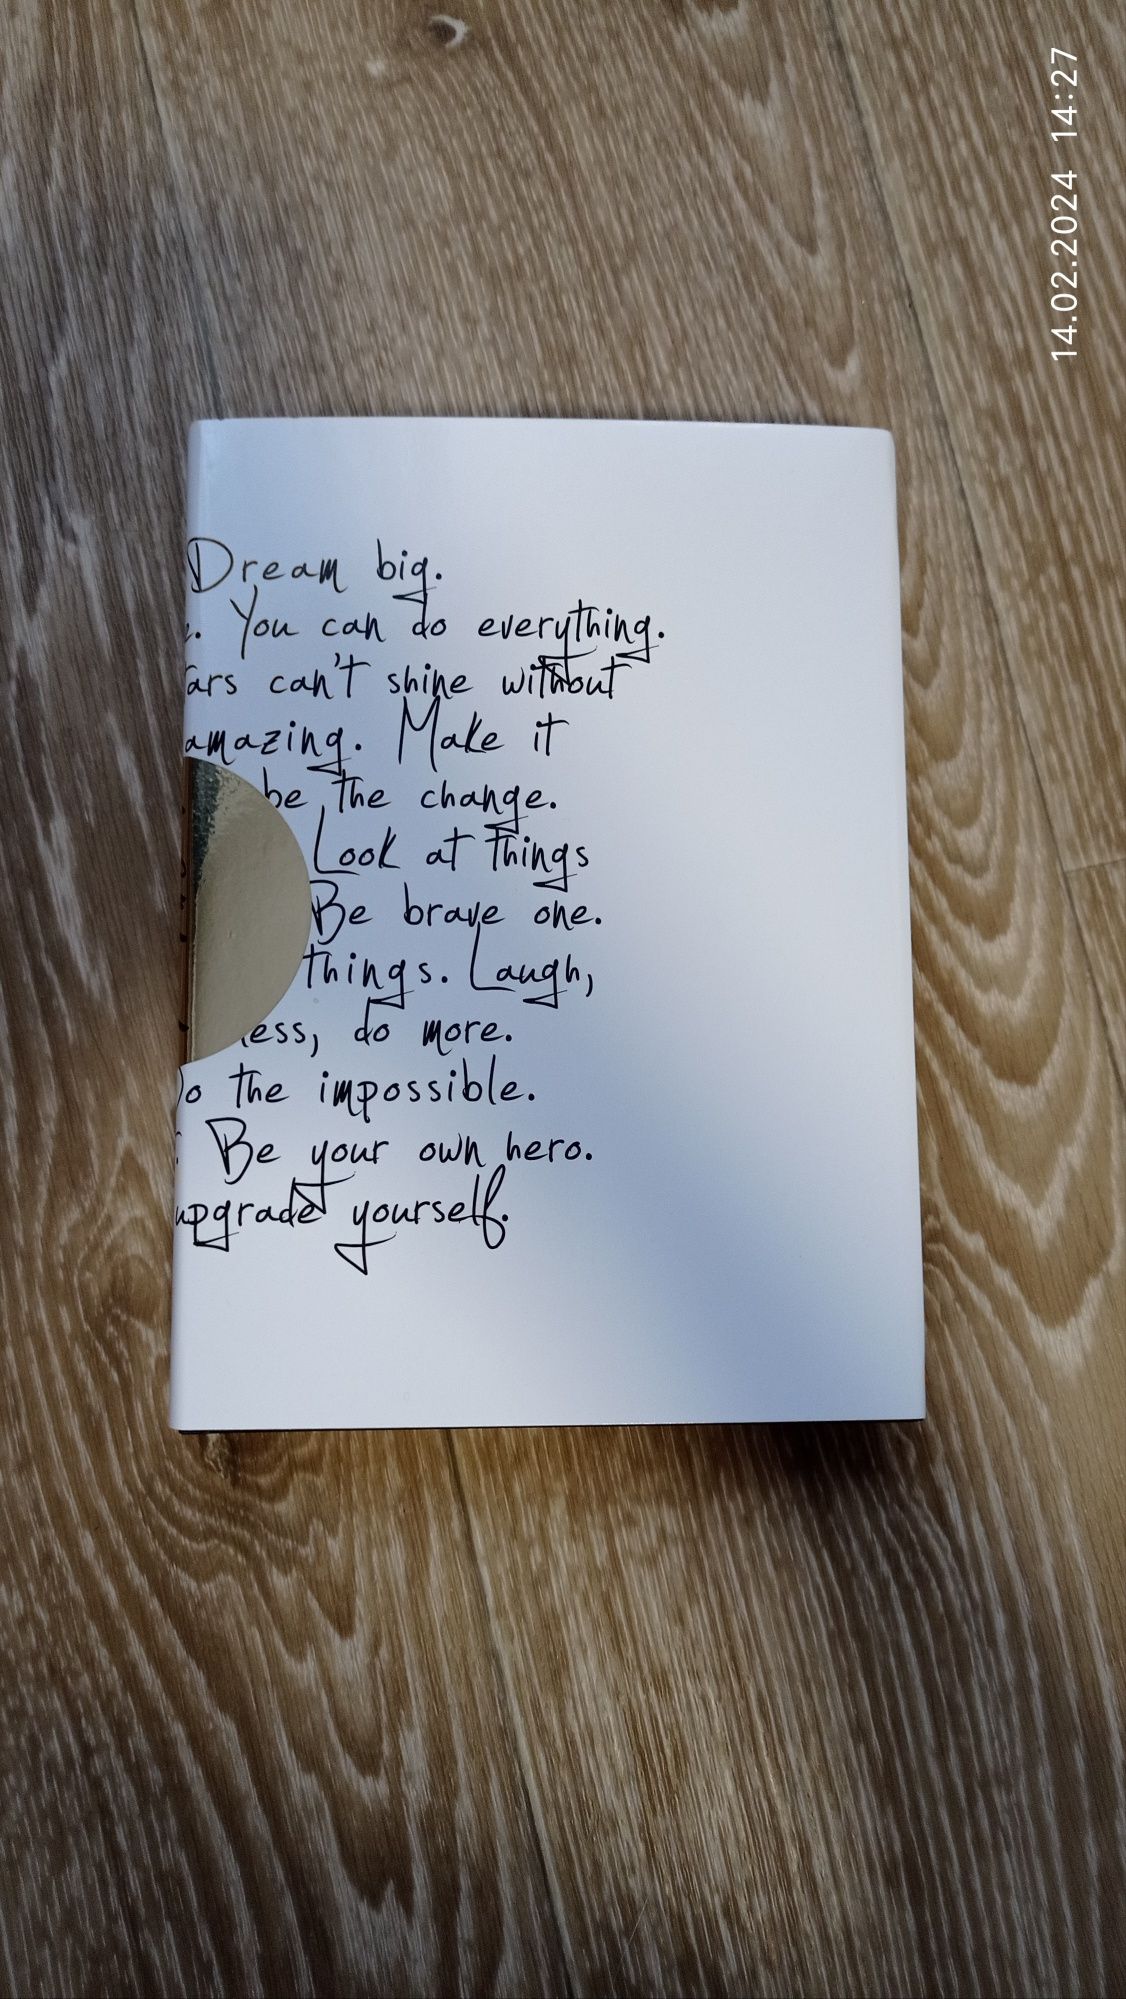 Dream big.
You can do everything.
can't shine without
amazing. Make it
be the change.
Look at things
Be brave one.
things. Laugh,
do more.
the impossible.
Be your own hero.
upgrade yourself.
14.02.2024 14:27